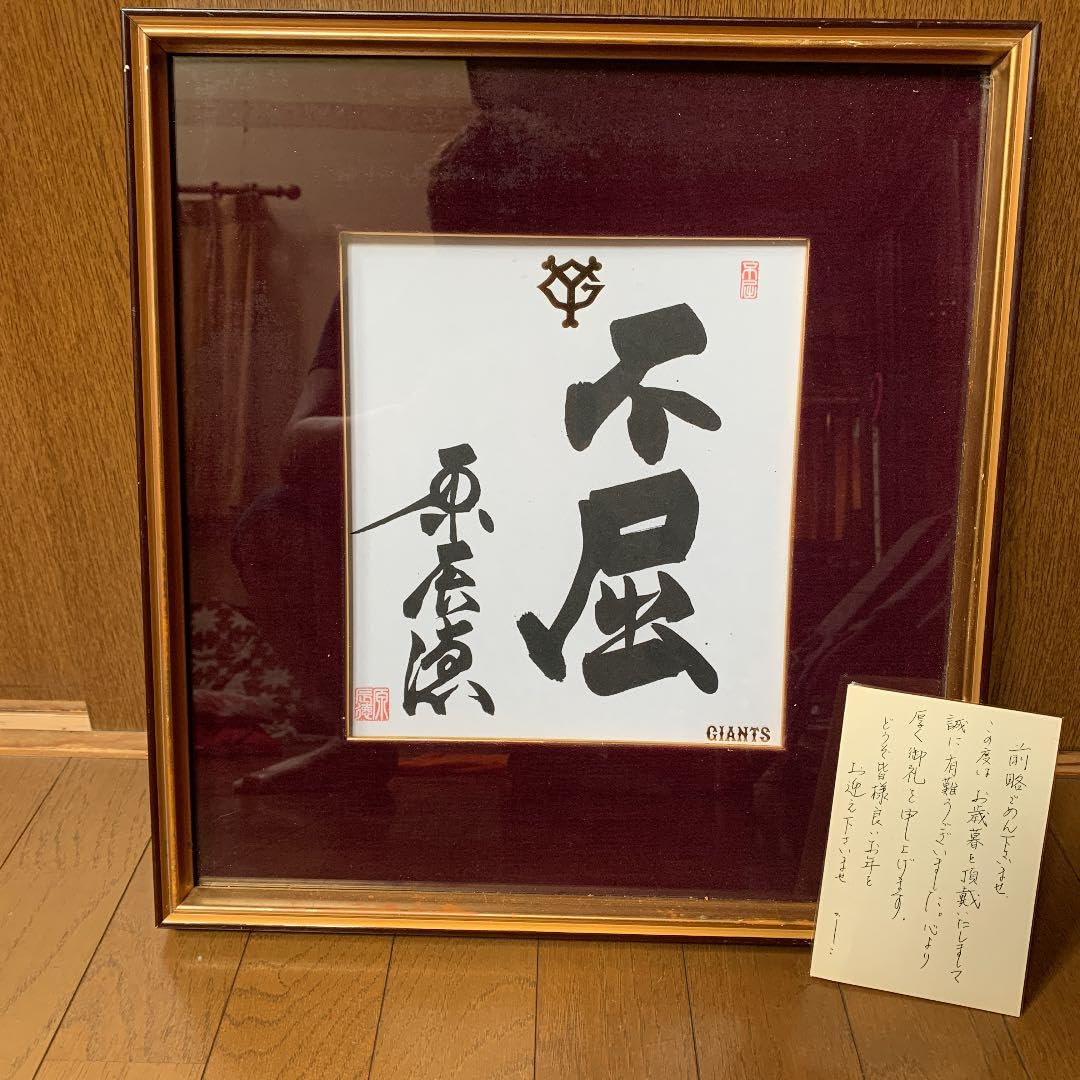 不屈
原辰徳
不屈
原辰徳
GIANTS
前略ごめん下さいませ
この度は お歳暮を頂戴いたしまして
誠に有難うございました。心より
厚く御礼を申し上げます。
どうぞ皆様良いお年を
お迎え下さいませ